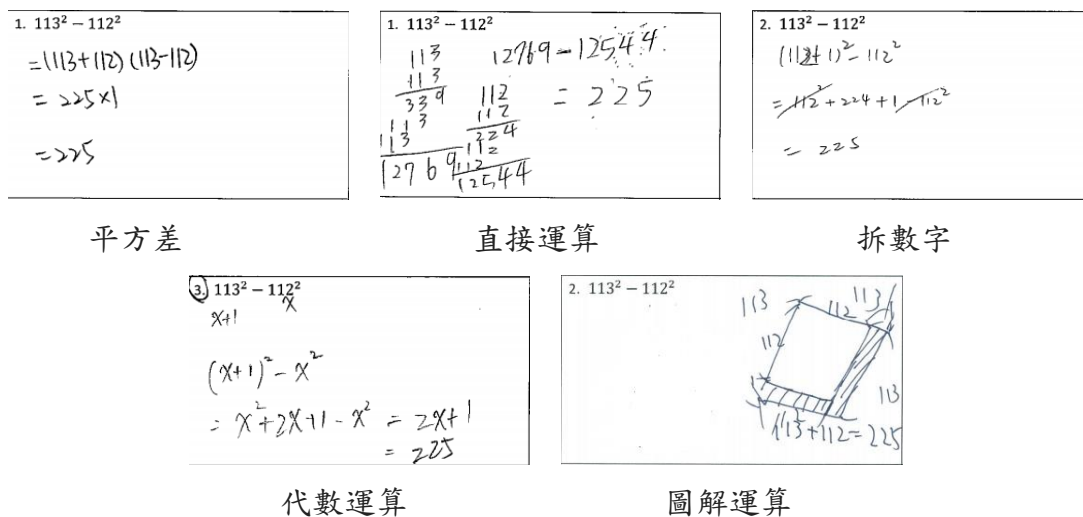 1. 113² − 112²
=(113+112)(113-112)
= 225×1
=225
平方差
1. 113² − 112²
113
113
339
113
113
12769
112
112
224
112
112
12544
12769-12544
= 225
直接運算
2. 113² − 112²
(112+1)²-112²
= 112²+224+1-112²
= 225
拆數字
3. 113² − 112²
x+1 x
(x+1)²-x²
= x²+2x+1-x² = 2x+1
= 225
代數運算
2. 113² − 112²
113 112 113
112
113
113+112=225
圖解運算